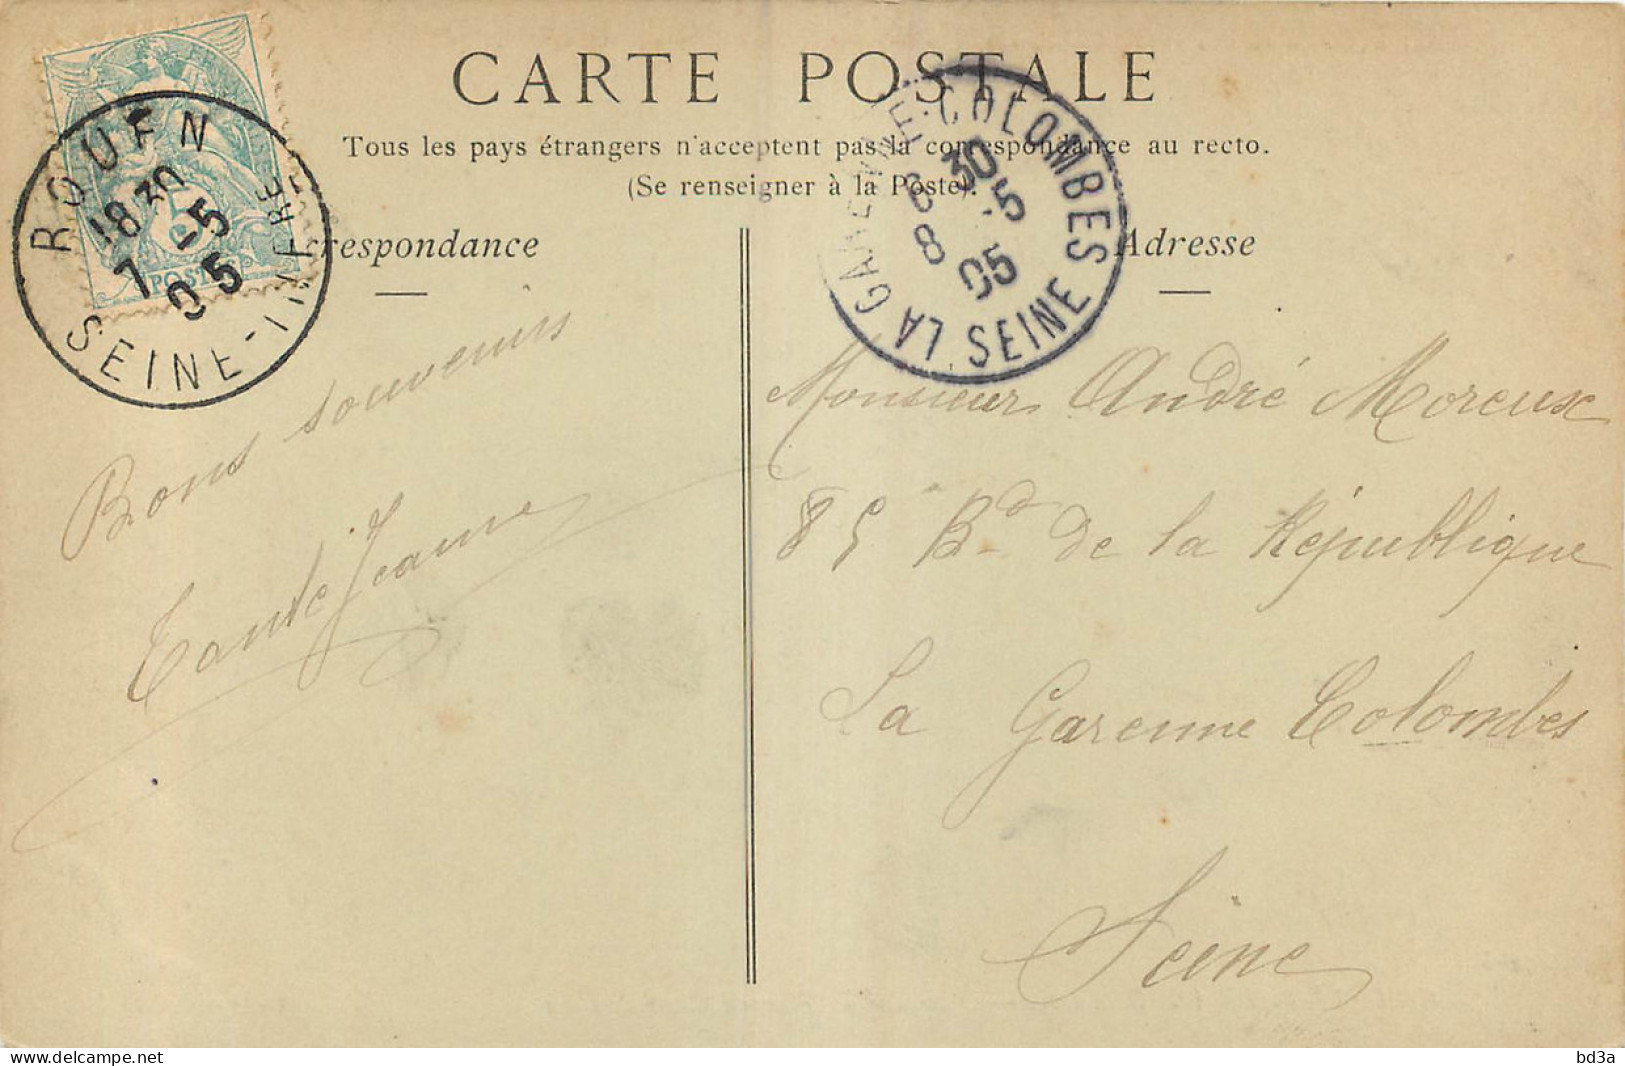 CARTE POSTALE
Tous les pays étrangers n'acceptent pas la correspondance au recto.
(Se renseigner à la Poste).
rrespondance
Adresse
ROUEN
18 30
7 -5
05
SEINE-INFRE
5
POSTE
LA GARENNE-COLOMBES
6 30
8 -5
05
SEINE
Bons souvenirs
Tante Jeanne
Monsieur André Moreux
85 Bd de la République
La Garenne Colombes
Seine
bd3a
www.delcampe.net